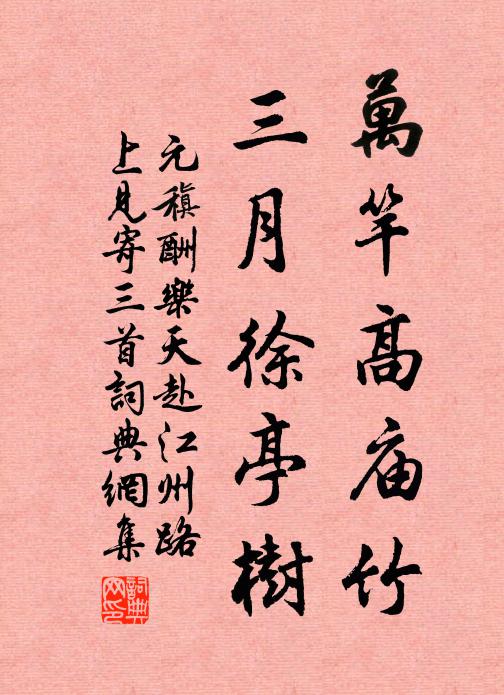 萬竿高庙竹
三月徐亭樹
元稹酬樂天赴江州路
上見寄三首詞典網集
詞典网印